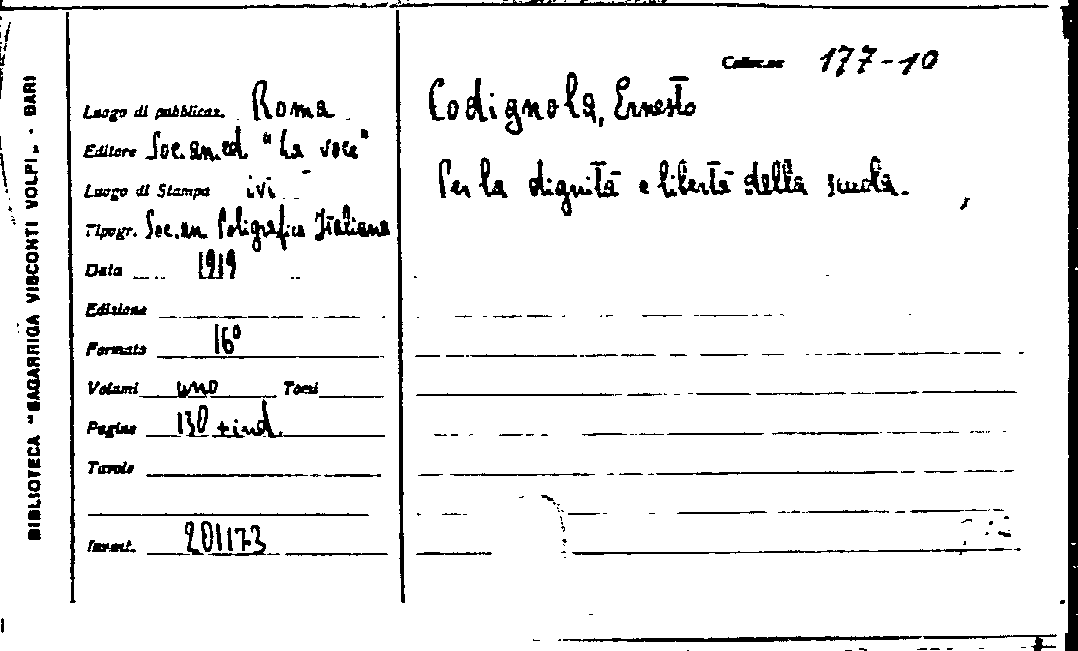 BIBLIOTECA "SAGARRIGA VISCONTI VOLPI„ - BARI
Collocaz. 177-10
Luogo di pubblicaz. Roma
Editore Soc. an. ed. "La voce"
Luogo di Stampa ivi
Tipogr. Soc. an. Poligrafica Italiana
Data 1919
Edizione
Formato 16º
Volumi uno Tomi
Pagine 130 + ind.
Tavole
Invent. 201173
Codignola, Ernesto
Per la dignità e libertà della scuola.